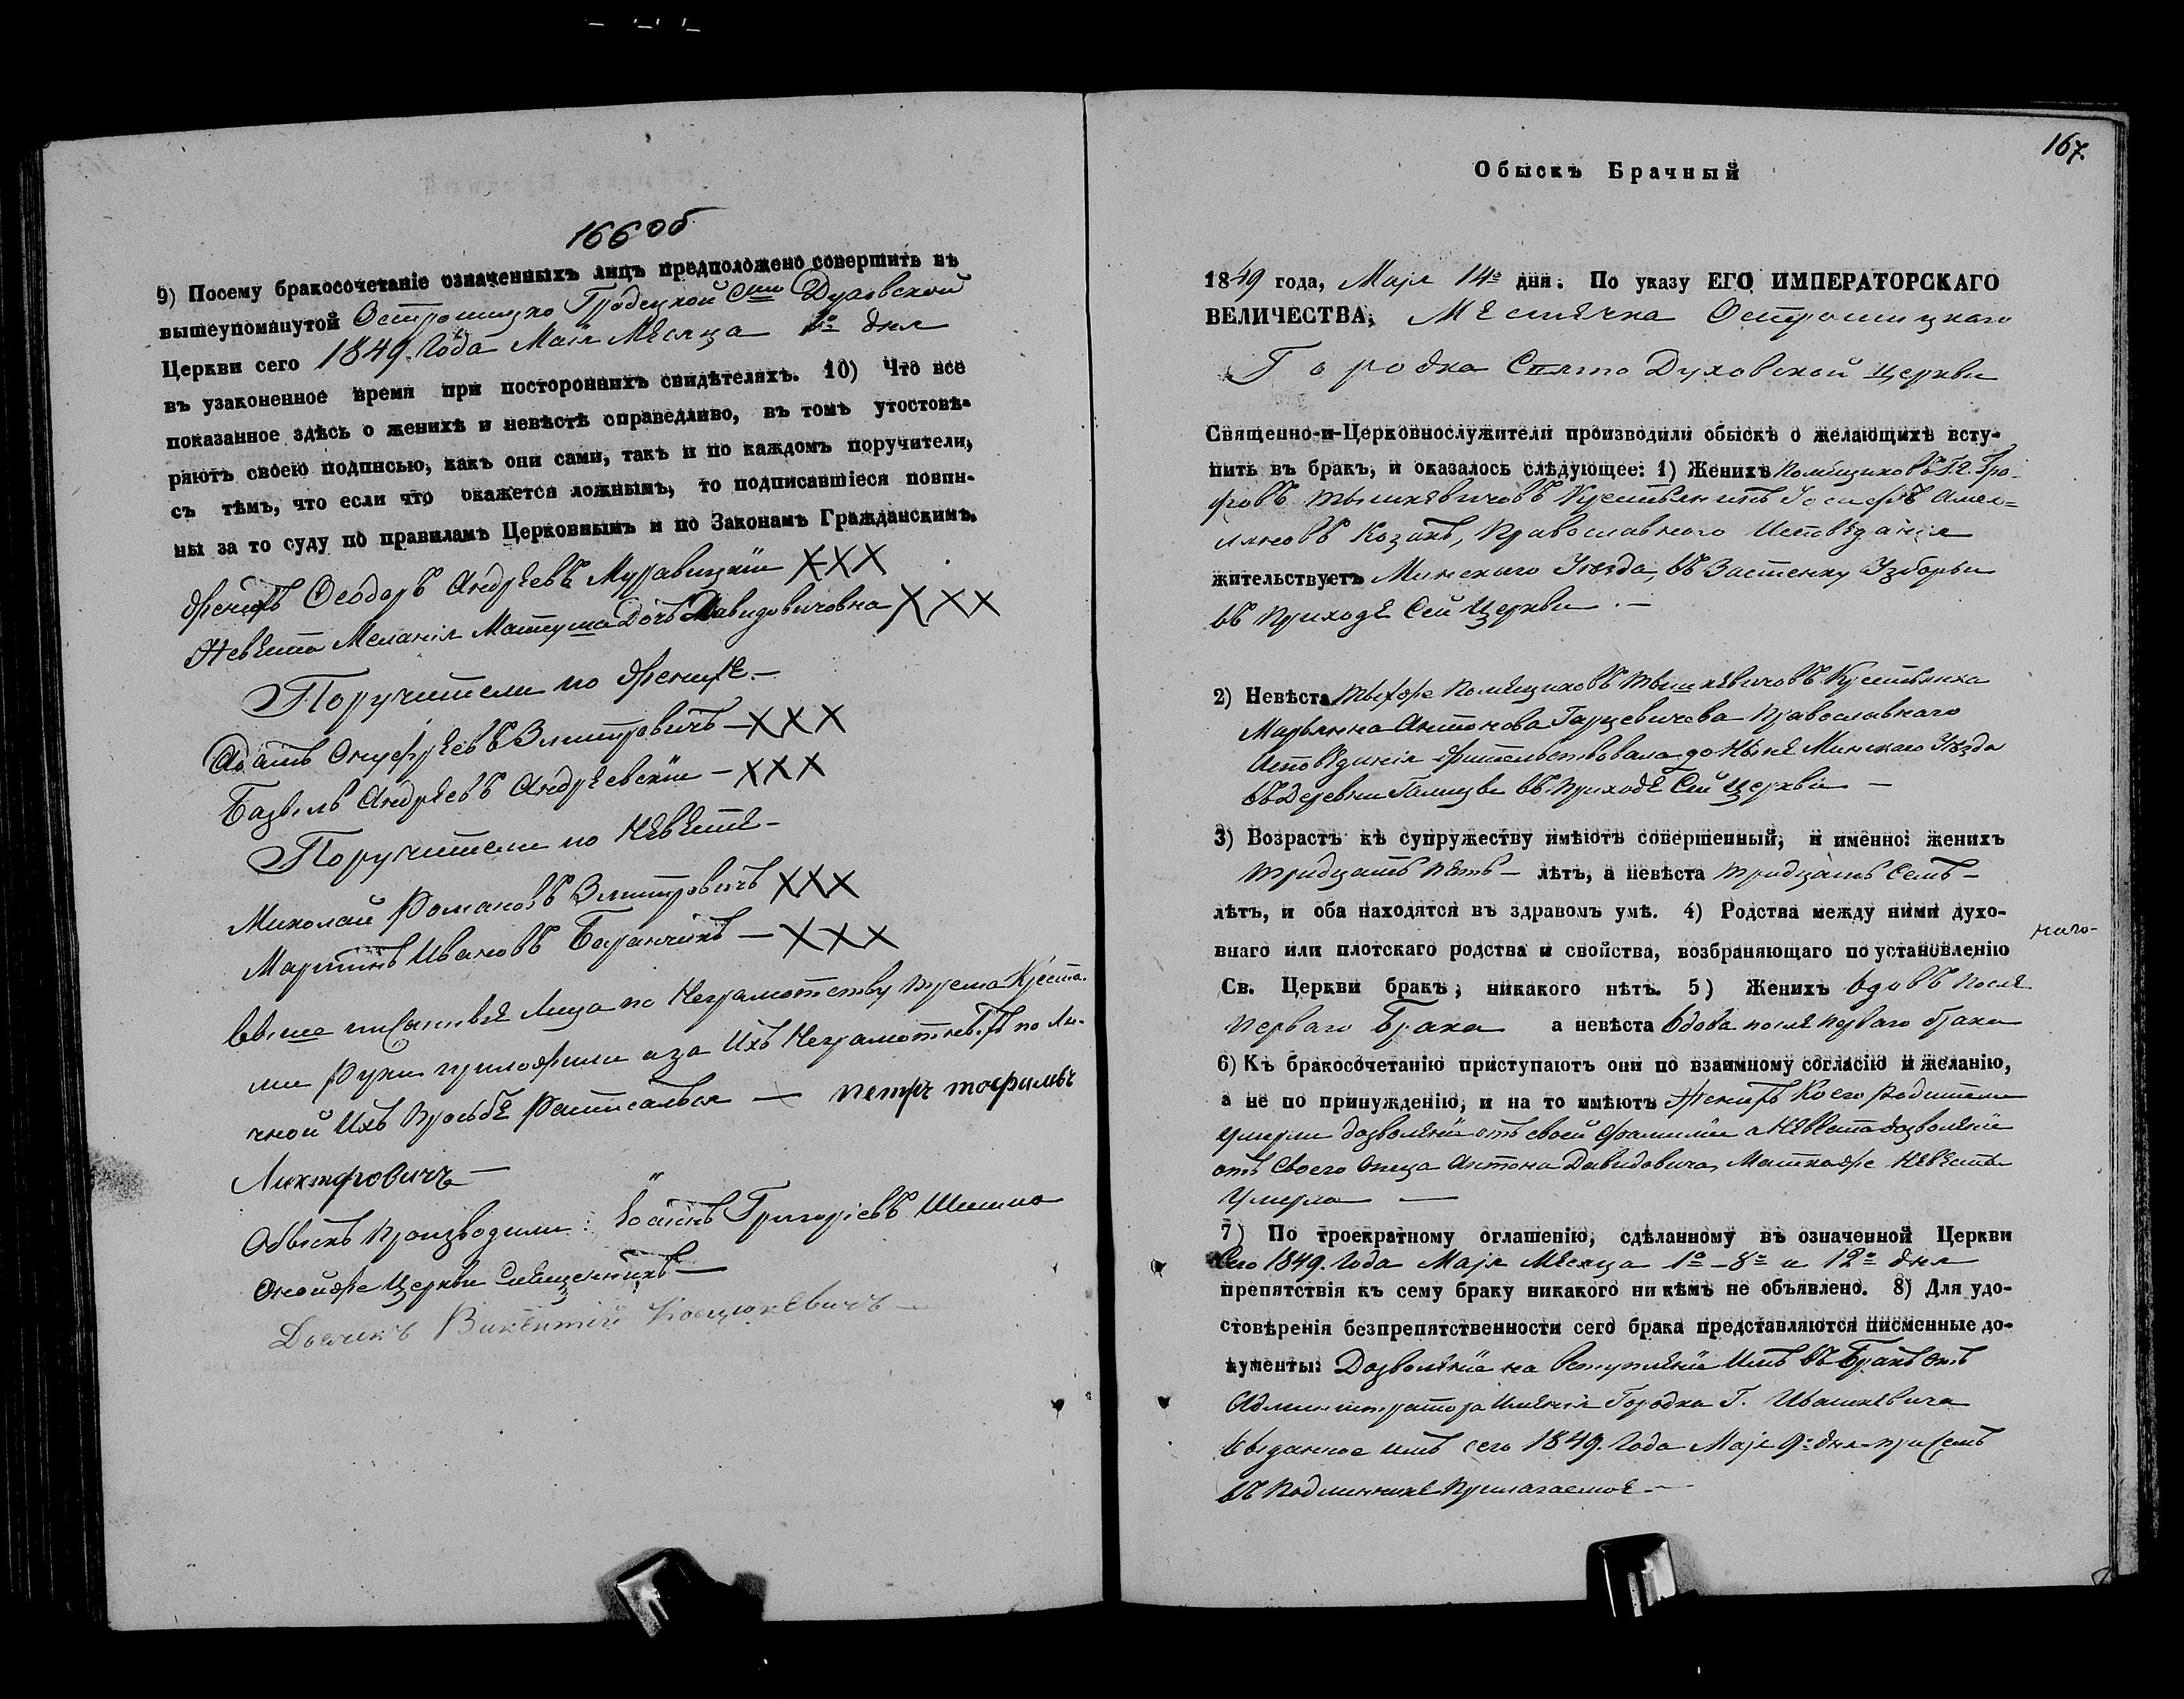 166 об
9) Посему бракосочетаніе означенныхъ лицъ предположено совершить въ
вышеупомянутой Острошицко Гродецкой Свято Духовской
Церкви сего 1849. Года Маія Мѣсяца дня
въ узаконенное время при постороннихъ свидѣтеляхъ. 10) Что все
показанное здѣсь о женихѣ и невѣстѣ справедливо, въ томъ утостовѣ-
ряютъ своею подписью, какъ они сами, такъ и по каждомъ поручители,
съ тѣмъ, что если что окажется ложнымъ, то подписавшіеся повин-
ны за то суду по правиламъ Церковнымъ и по Законамъ Гражданскимъ.
Женихъ Ѳеодоръ Андрѣевъ Муравицкій XXX
Невѣста Меланія Матеуша Дочь Давидовичовна XXX
Поручители по Женихѣ.—
Адамъ Онуфрѣевъ Змитровичъ — XXX
Базыль Андрѣевъ Андрѣевскій — XXX
Поручители по Невѣстѣ —
Миколай Романовъ Змитровичъ XXX
Мартинъ Ивановъ Баранчикъ — XXX
Выше писанныѣ Лица по Неграмотству Трема Креста-
ми Руки приложили а за Ихъ Неграмотныхъ по Ли-
чной Ихъ Просьбѣ Расписался — Петръ
Обыскъ Производили: Іоаннъ Григоріевъ Шишко
Онойже Церкви Священникъ —
Дьячекъ Викентій
167.
Обыскъ Брачный
1849 года, Маія 14го дня. По указу ЕГО ИМПЕРАТОРСКАГО
ВЕЛИЧЕСТВА, Мѣстѣчка Острошицкаго
Городка Свято Духовской Церкви
Священно-и-Церковнослужители производили обыскъ о желающихъ всту-
пить въ бракъ, и оказалось слѣдующее: 1) Женихъ Помѣщиковъ Г.Г. Гра-
фовъ Тышкѣвичовъ Крестьянинъ Іосифъ Амел-
ляновъ Козакъ, Православнаго Исповѣданія
жительствуетъ Минскаго Уѣзда, въ Застенку Узборьи
въ Приходѣ Сей Церкви. —
2) Невѣста Тыхже Помѣщиковъ Тышкѣвичовъ Крестьянка
Марьянна Антонова Гарцевичова Православнаго
Исповѣданія Жительствовала до Нынѣ Минскаго Уѣзда
въ Деревни Галицы въ Приходѣ Сей Церкви —
3) Возрастъ къ супружеству имѣютъ совершенный, и именно: женихъ
Тридцать Пять — лѣтъ, а невѣста Тридцать Семь —
лѣтъ, и оба находятся въ здравомъ умѣ. 4) Родства между ними духо-
внаго или плотскаго родства и свойства, возбраняющаго по установленію
Св. Церкви бракъ, никакого нѣтъ. 5) Женихъ вдовъ Послѣ
Перваго Брака а невѣста Вдова послѣ перваго брака
6) Къ бракосочетанію приступаютъ они по взаимному согласію и желанію,
а не по принужденію, и на то имѣютъ Женихъ Коего Родители
Умерли дозволѣніе отъ своей Фамиліи а Невѣста дозволѣніе
отъ Своего Отца Антона Давидовича, Матка же Невѣсты
Умерла —
7) По троекратному оглашенію, сдѣланному въ означенной Церкви
Сего 1849. Года Маія Мѣсяца 1го — 8го и 12го дня
препятствія къ сему браку никакого ни кѣмъ не объявлено. 8) Для удо-
стовѣренія безпрепятственности сего брака представляются писменные до-
кументы: Дозволѣніе на Вступлѣніе Имъ въ Бракъ отъ
Администратора Имѣнія Городка Г. Ивашкѣвича
выданное имъ сего 1849. Года Маія 9го дня при семъ
въ Подлинникѣ Прилагаемоѣ —